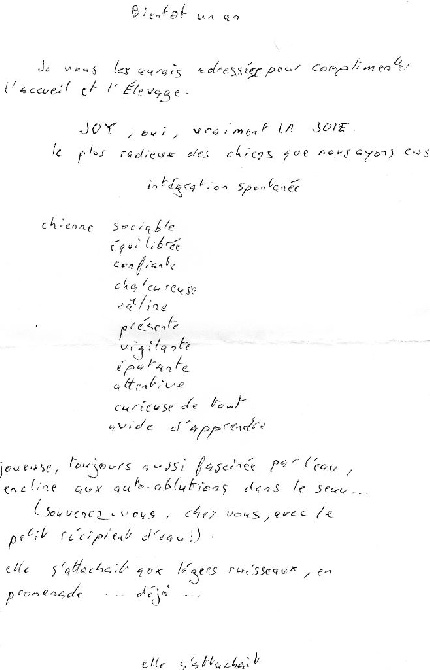 Bientôt un an
Je vous les aurais adressées pour complimenter
l'accueil et l'Élevage.
JOY, oui, vraiment LA JOIE.
le plus radieux des chiens que nous ayons eus
intégration spontanée
chienne sociable
équilibrée
confiante
chaleureuse
câline
présente
vigilante
épatante
attentive
curieuse de tout
avide d'apprendre
joueuse, toujours aussi fascinée par l'eau,
encline aux auto-ablutions dans le seau...
(souvenez-vous. chez vous, avec le
petit récipient d'eau!)
elle s'attachait aux légers ruisseaux, en
promenade ... déjà ...
elle s'attachait